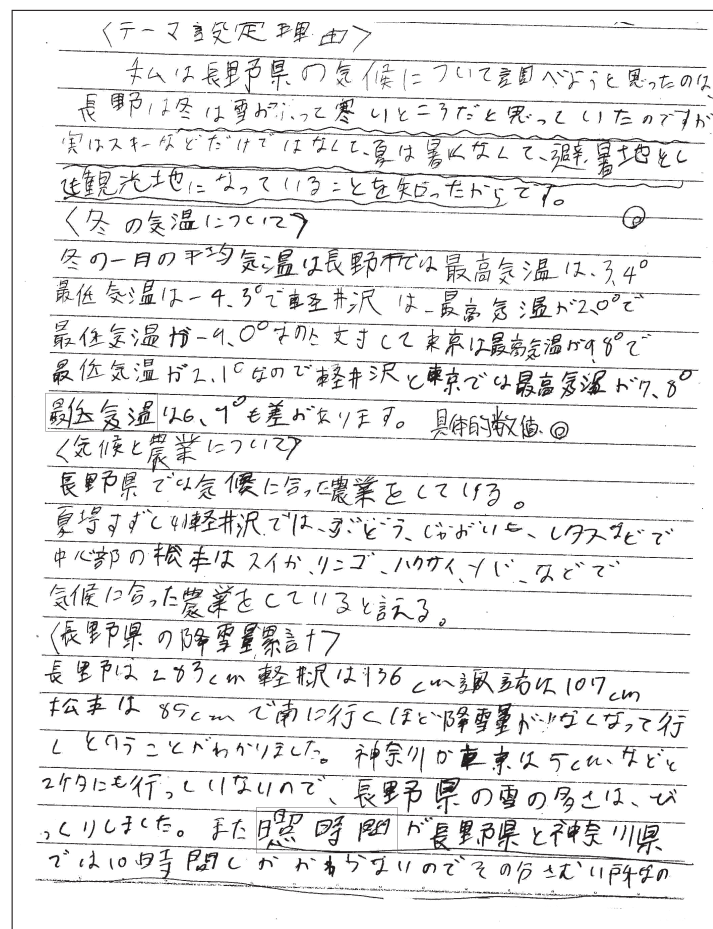 〈テーマ設定理由〉
私は長野県の気候について調べようと思ったのは、
長野は冬は雪がふって寒いところだと思っていたのですが
実はスキーなどだけではなくて、夏は暑くなくて、避暑地とし
て観光地になっていることを知ったからです。
〈冬の気温について〉
冬の一月の平均気温は長野市では最高気温は、3.4°
最低気温は-4.3°で軽井沢は最高気温が2.0°で
最低気温が-9.0°なのに対して東京は最高気温が9.8°で
最低気温が2.1°なので軽井沢と東京では最高気温が7.8°
最低気温は6.9°も差があります。 具体的数値◎
〈気候と農業について〉
長野県では気候に合った農業をしている。
夏場すずしい軽井沢では、ぶどう、じゃがいも、レタスなどで
中心部の松本はスイカ、リンゴ、ハクサイ、などで
気候に合った農業をしていると言える。
〈長野県の降雪量累計〉
長野は283cm 軽井沢は136cm諏訪は107cm
松本は85cmで南に行くほど降雪量が少なくなって行
くということがわかりました。神奈川か東京は5cm、などと
2ケタにも行っていないので、長野県の雪の多さは、び
っくりしました。また日照時間が長野県と神奈川県
では10時間しかかわらないのでその分さむい所なの